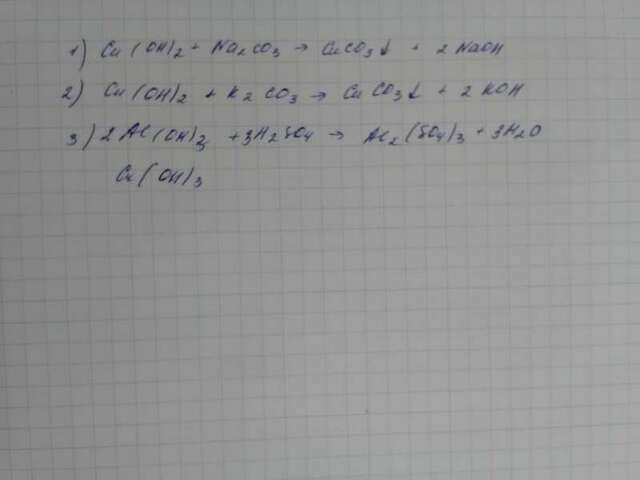 1) Cu(OH)2 + Na2CO3 → CuCO3↓ + 2NaOH
2) Cu(OH)2 + K2CO3 → CuCO3↓ + 2KOH
3) 2Al(OH)3 + 3H2SO4 → Al2(SO4)3 + 3H2O
Cu(OH)3